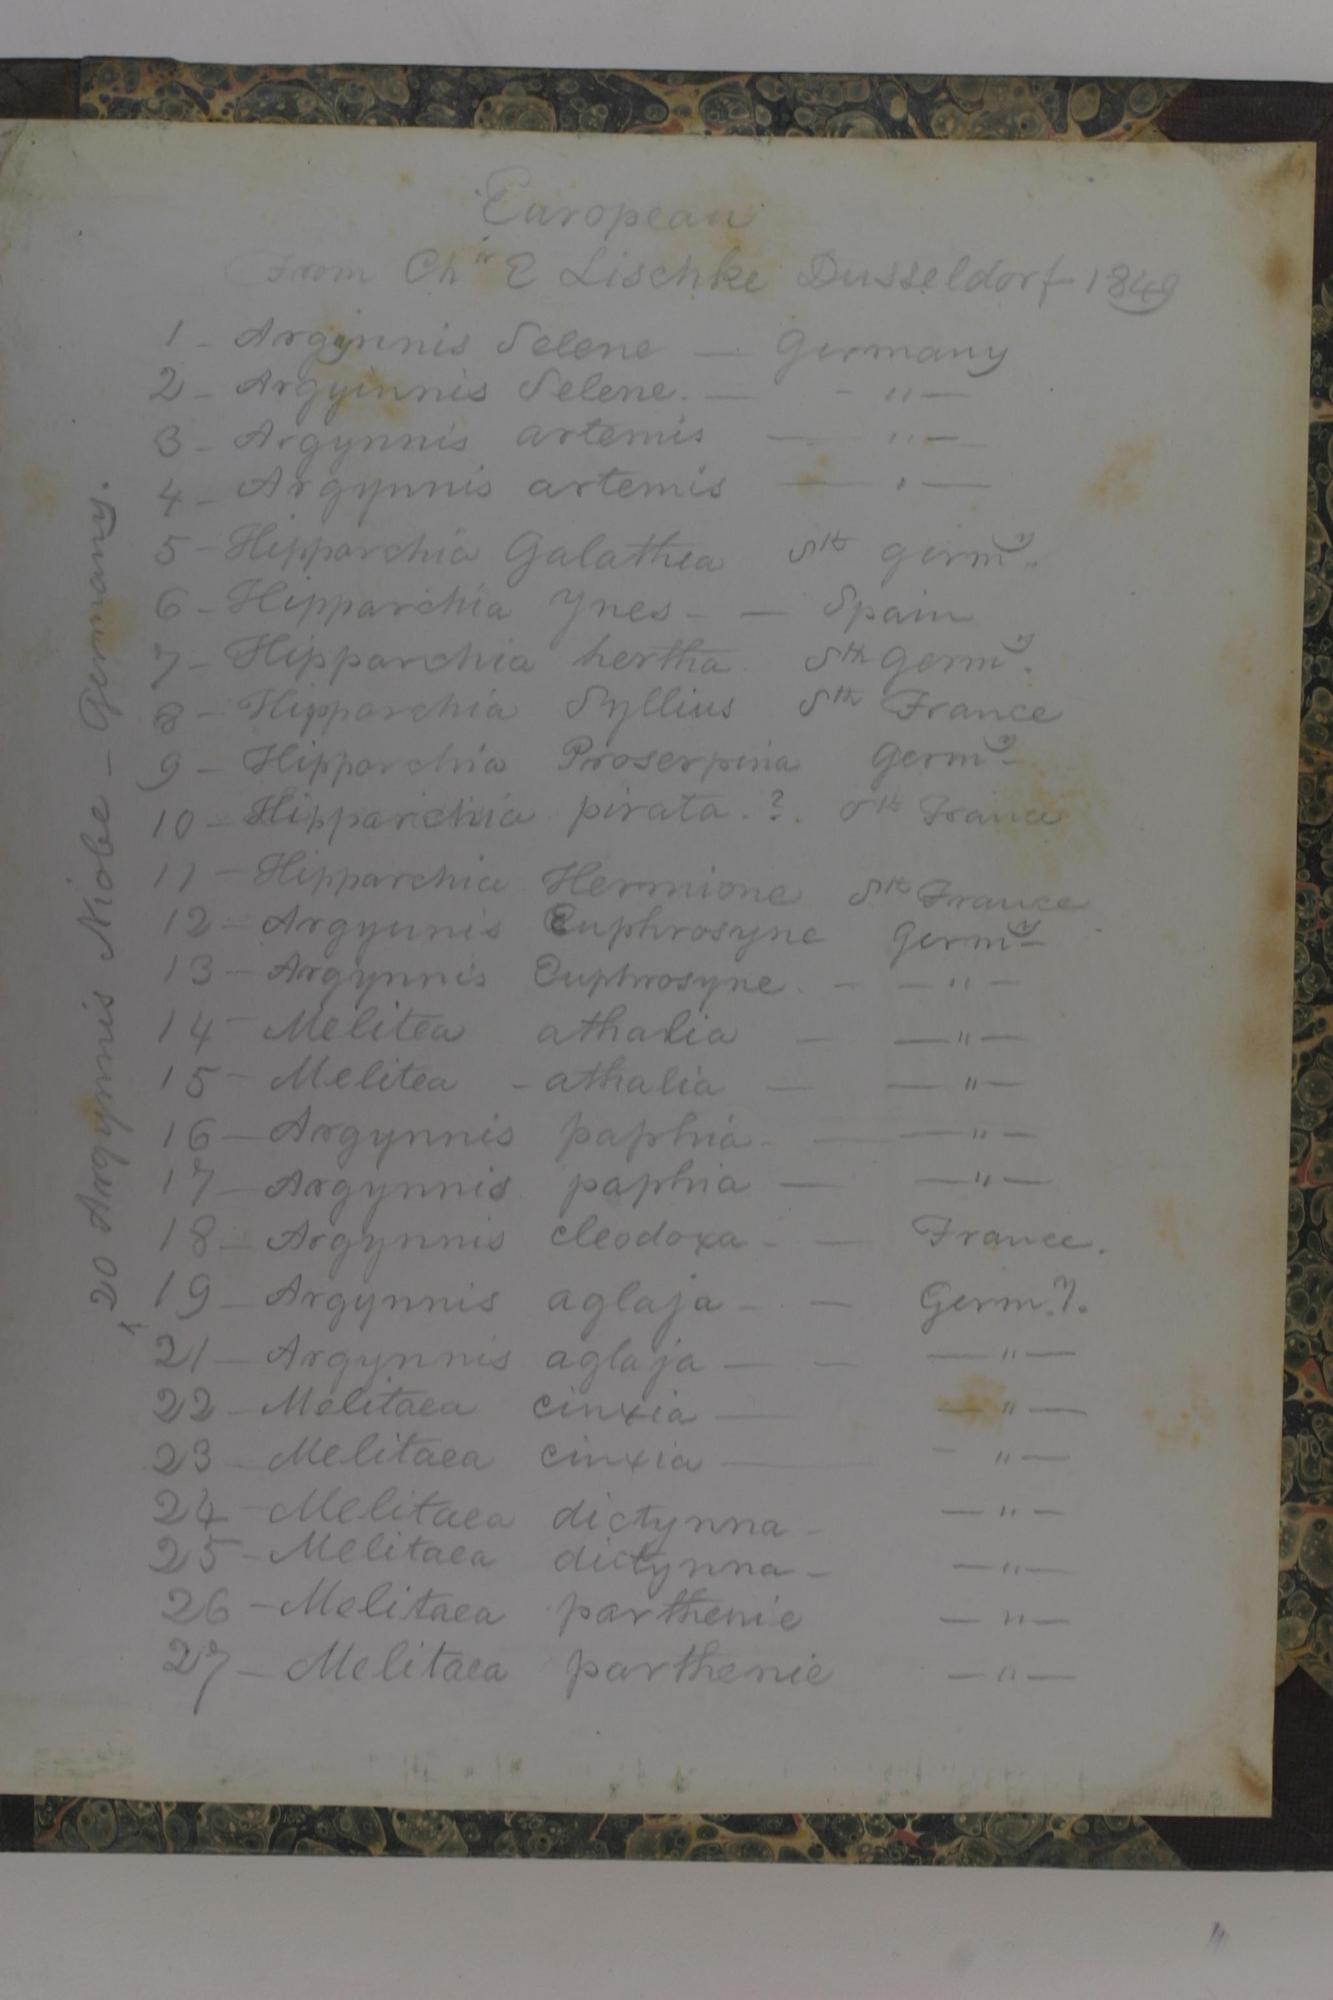 European
From Chr E Lischke Dusseldorf 1849
1 - Argynnis Selene — Germany
2 - Argyinnis Selene. — - " —
3 - Argynnis artemis — " —
4 - Argynnis artemis — " —
5 - Hipparchia Galathea Sth Germy.
6 - Hipparchia Ynes - — Spain
7 - Hipparchia hertha Sth Germy.
8 - Hipparchia Syllius Sth France
9 - Hipparchia Proserpina Germy
10 - Hipparchia pirata. ?. Sth France
11 - Hipparchia Hermione Sth France
12 - Argynnis Euphrosyne Germy
13 - Argynnis Euphrosyne. - — " —
14 - Melitea athalia — — " —
15 - Melitea - athalia — — " —
16 — Argynnis paphia. — — " —
17 — Argynnis paphia — — " —
18 — Argynnis cleodoxa - — France.
19 — Argynnis aglaja - — Germ.y.
^ 20 Argynnis Niobe — Germany.
21 — Argynnis aglaja — — — " —
22 — Melitaea cinxia — — " —
23 — Melitaea cinxia — - " —
24 - Melitaea dictynna - — " —
25 - Melitaea dictynna - — " —
26 - Melitaea parthenie — " —
27 — Melitaea parthenie — " —